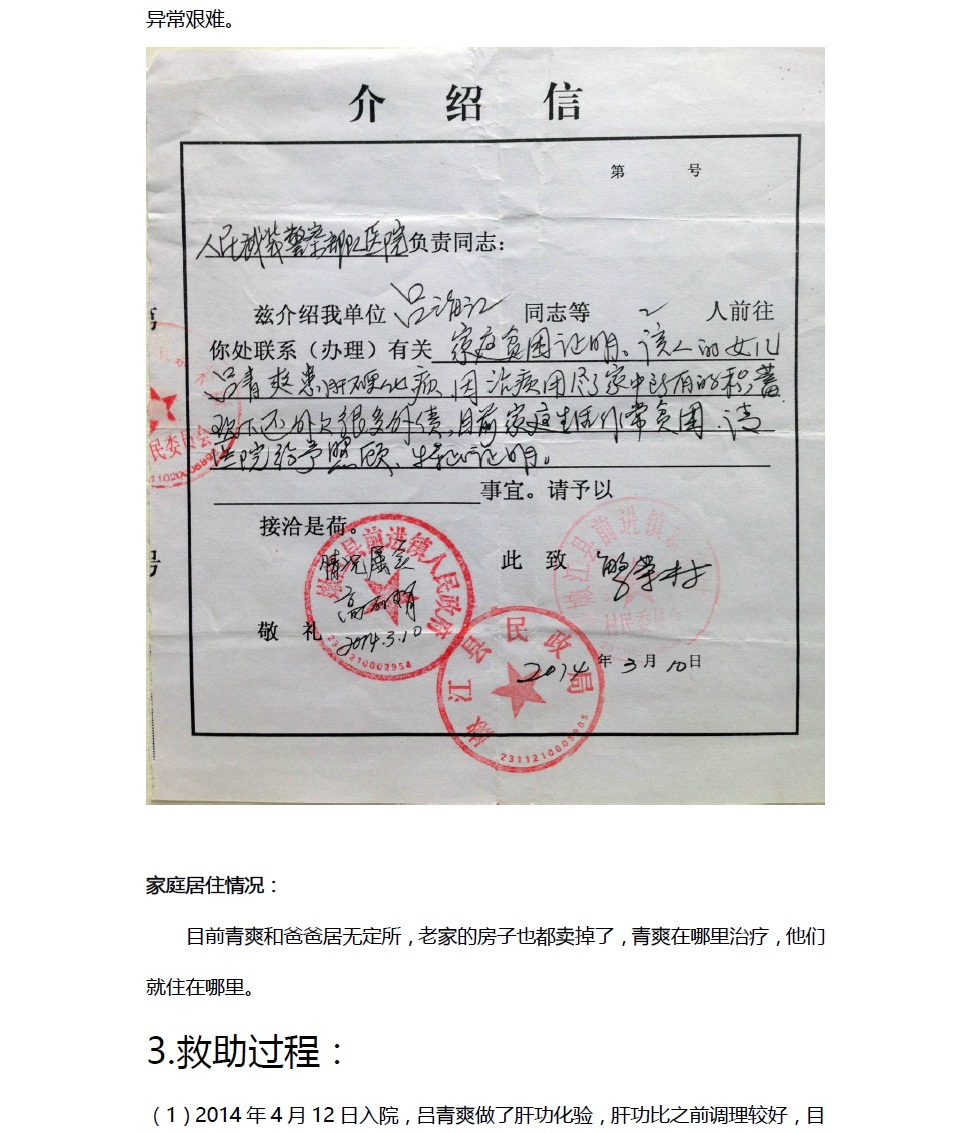 异常艰难。
介 绍 信
第 号
人民武装警察部队医院负责同志：
兹介绍我单位 吕 同志等 2 人前往
你处联系（办理）有关 家庭贫困证明。该人的女儿
吕青爽患肝硬化病，因治病用尽了家中所有的积蓄
现还外欠很多外债，目前家庭生活非常贫困，请
医院给予照顾，特此证明。
事宜。请予以
接洽是荷。
此 致
情况属实
敬 礼
2014.3.10
2014 年 3 月 10 日
嫩江县前进镇人民政府
2311210002954
嫩江县民政局
2311210005005
嫩江县前进镇
村民委员会
民委员会
号
家庭居住情况：
目前青爽和爸爸居无定所，老家的房子也都卖掉了，青爽在哪里治疗，他们
就住在哪里。
3.救助过程：
（1）2014 年 4 月 12 日入院，吕青爽做了肝功化验，肝功比之前调理较好，目